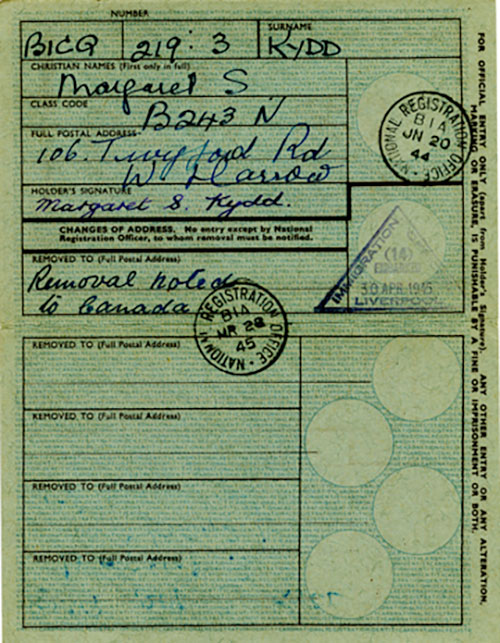 NUMBER
SURNAME
B1CQ 219 : 3 KYDD
CHRISTIAN NAMES (First only in full)
Margaret S.
CLASS CODE
B243 N
FULL POSTAL ADDRESS
106. Twyford Rd
W. Harrow
HOLDER'S SIGNATURE
Margaret S. Kydd.
CHANGES OF ADDRESS. No entry except by National
Registration Officer, to whom removal must be notified.
REMOVED TO (Full Postal Address)
Removal noted
to Canada
REMOVED TO (Full Postal Address)
REMOVED TO (Full Postal Address)
REMOVED TO (Full Postal Address)
REMOVED TO (Full Postal Address)
NATIONAL REGISTRATION OFFICE
BIA
JN 20
44
IMMIGRATION
(14)
30 APR 1945
LIVERPOOL
NATIONAL REGISTRATION OFFICE
BIA
MR 28
45
FOR OFFICIAL ENTRY ONLY (apart from Holder's Signature). ANY OTHER ENTRY OR ANY ALTERATION,
MARKING OR ERASURE, IS PUNISHABLE BY A FINE OR IMPRISONMENT OR BOTH.